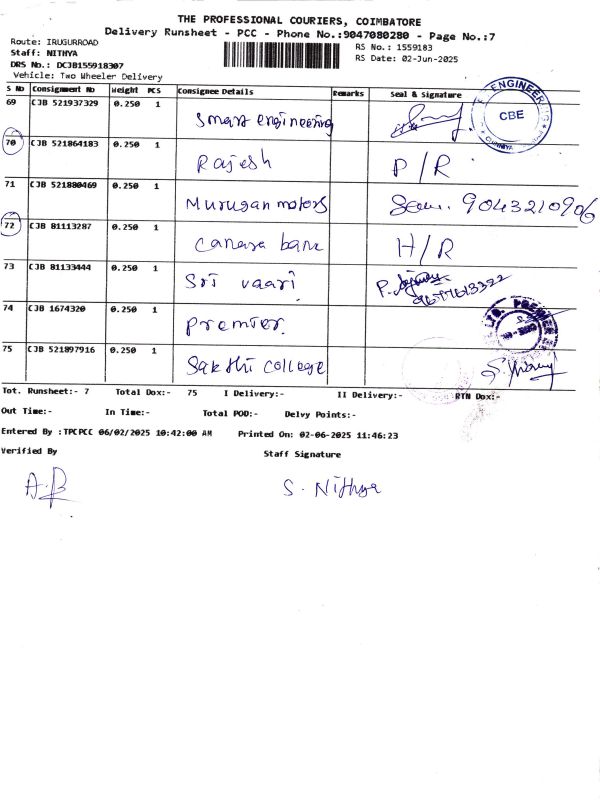 THE PROFESSIONAL COURIERS, COIMBATORE
Delivery Runsheet - PCC - Phone No.:9047080280 - Page No.:7
Route: IRUGURROAD
RS No.: 1559183
Staff: NITHYA
RS Date: 02-Jun-2025
DRS No.: DCJB155918307
Vehicle: Two Wheeler Delivery
S No Consignment No Weight PCS Consignee Details Remarks Seal & Signature
69 CJB 521937329 0.250 1 Smart engineering
ENGINEER
CBE
70 CJB 521864183 0.250 1 Rajesh P/R
71 CJB 521880469 0.250 1 Murugan motors 9043210906
72 CJB 81113287 0.250 1 Canara bank H/R
73 CJB 81133444 0.250 1 Sri vaari
74 CJB 1674320 0.250 1 Premier.
75 CJB 521897916 0.250 1 Sakthi college
Tot. Runsheet:- 7 Total Dox:- 75 I Delivery:- II Delivery:- RTN Dox:-
Out Time:- In Time:- Total POD:- Delvy Points:-
Entered By :TPCPCC 06/02/2025 10:42:00 AM Printed On: 02-06-2025 11:46:23
Verified By Staff Signature
S. Nithya